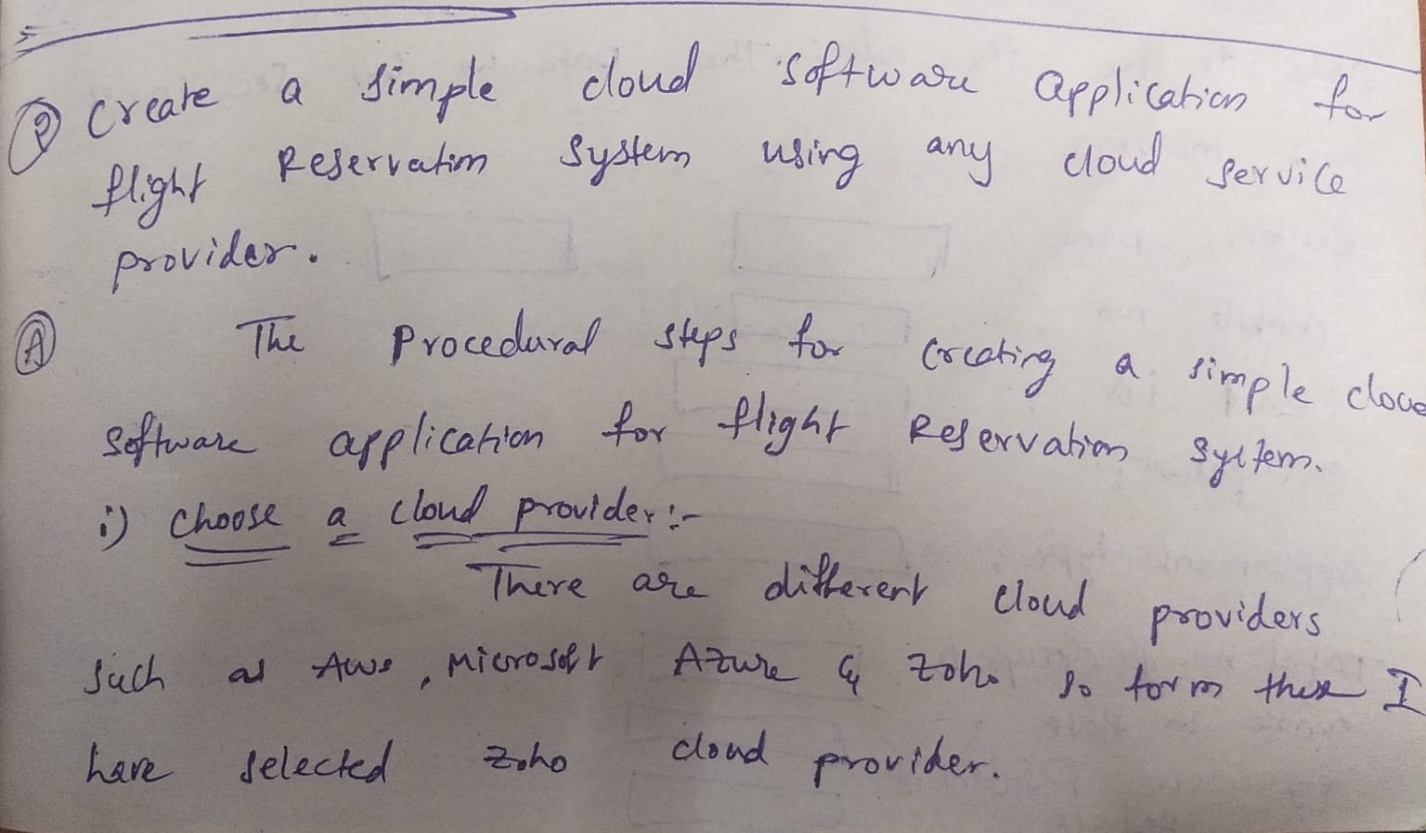 ② Create a simple cloud software Application for
flight Reservation System using any cloud service
provider.
Ⓐ The Procedural steps for Creating a simple clou
Software application for flight Reservation System.
i) Choose a cloud provider:-
There are different cloud providers
Such as AWS, Microsoft Azure & Zoho so form these I
have selected Zoho cloud provider.